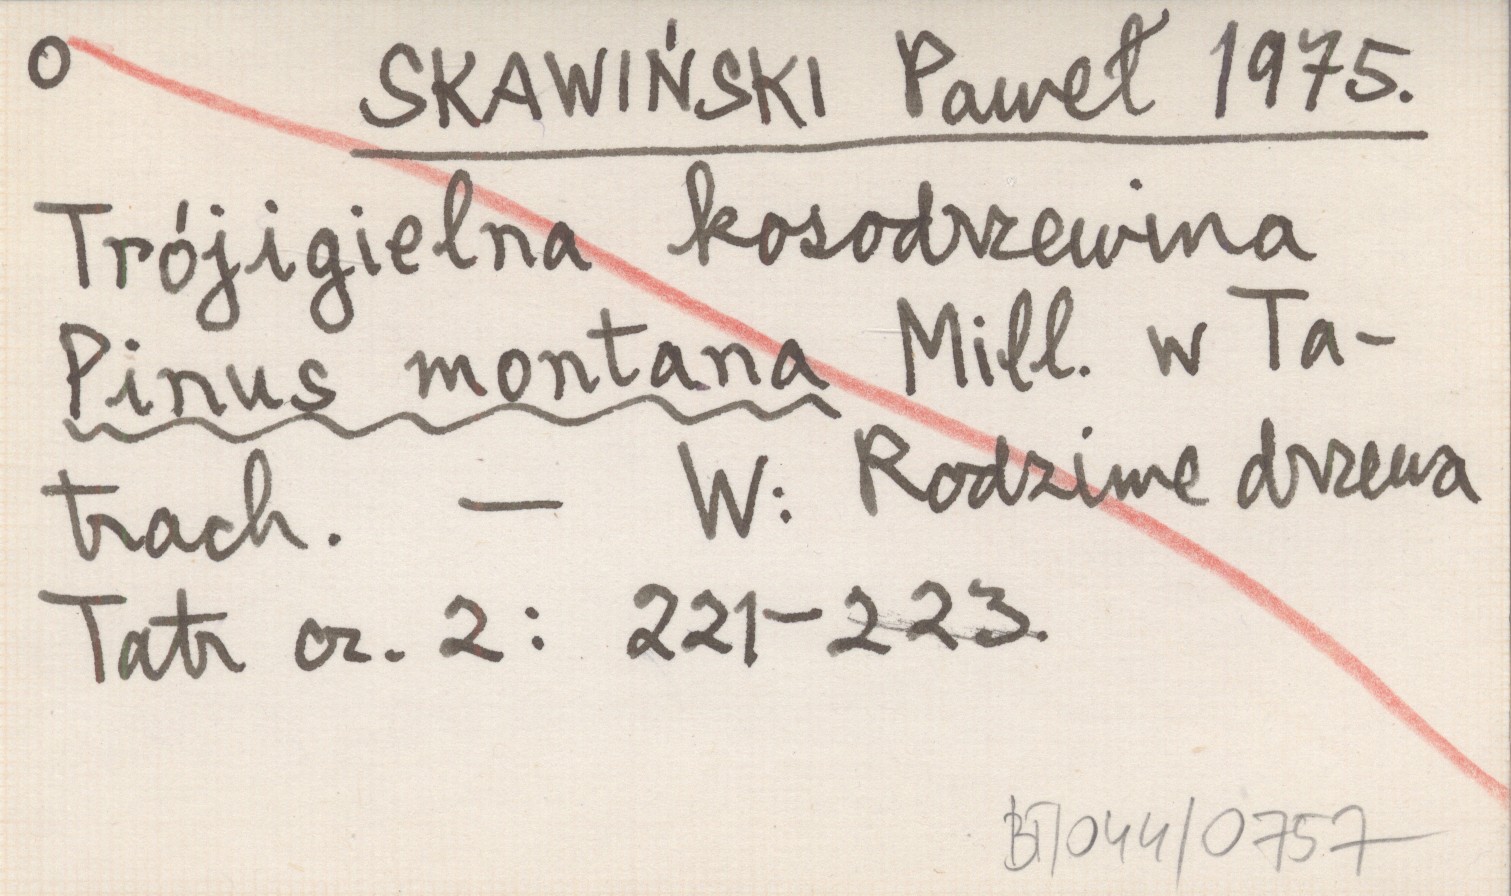 O SKAWIŃSKI Paweł 1975.
Trójigielna kosodrzewina
Pinus montana Mill. w Ta-
trach. — W: Rodzime drzewa
Tatr cz. 2: 221-223.
BT/044/0757